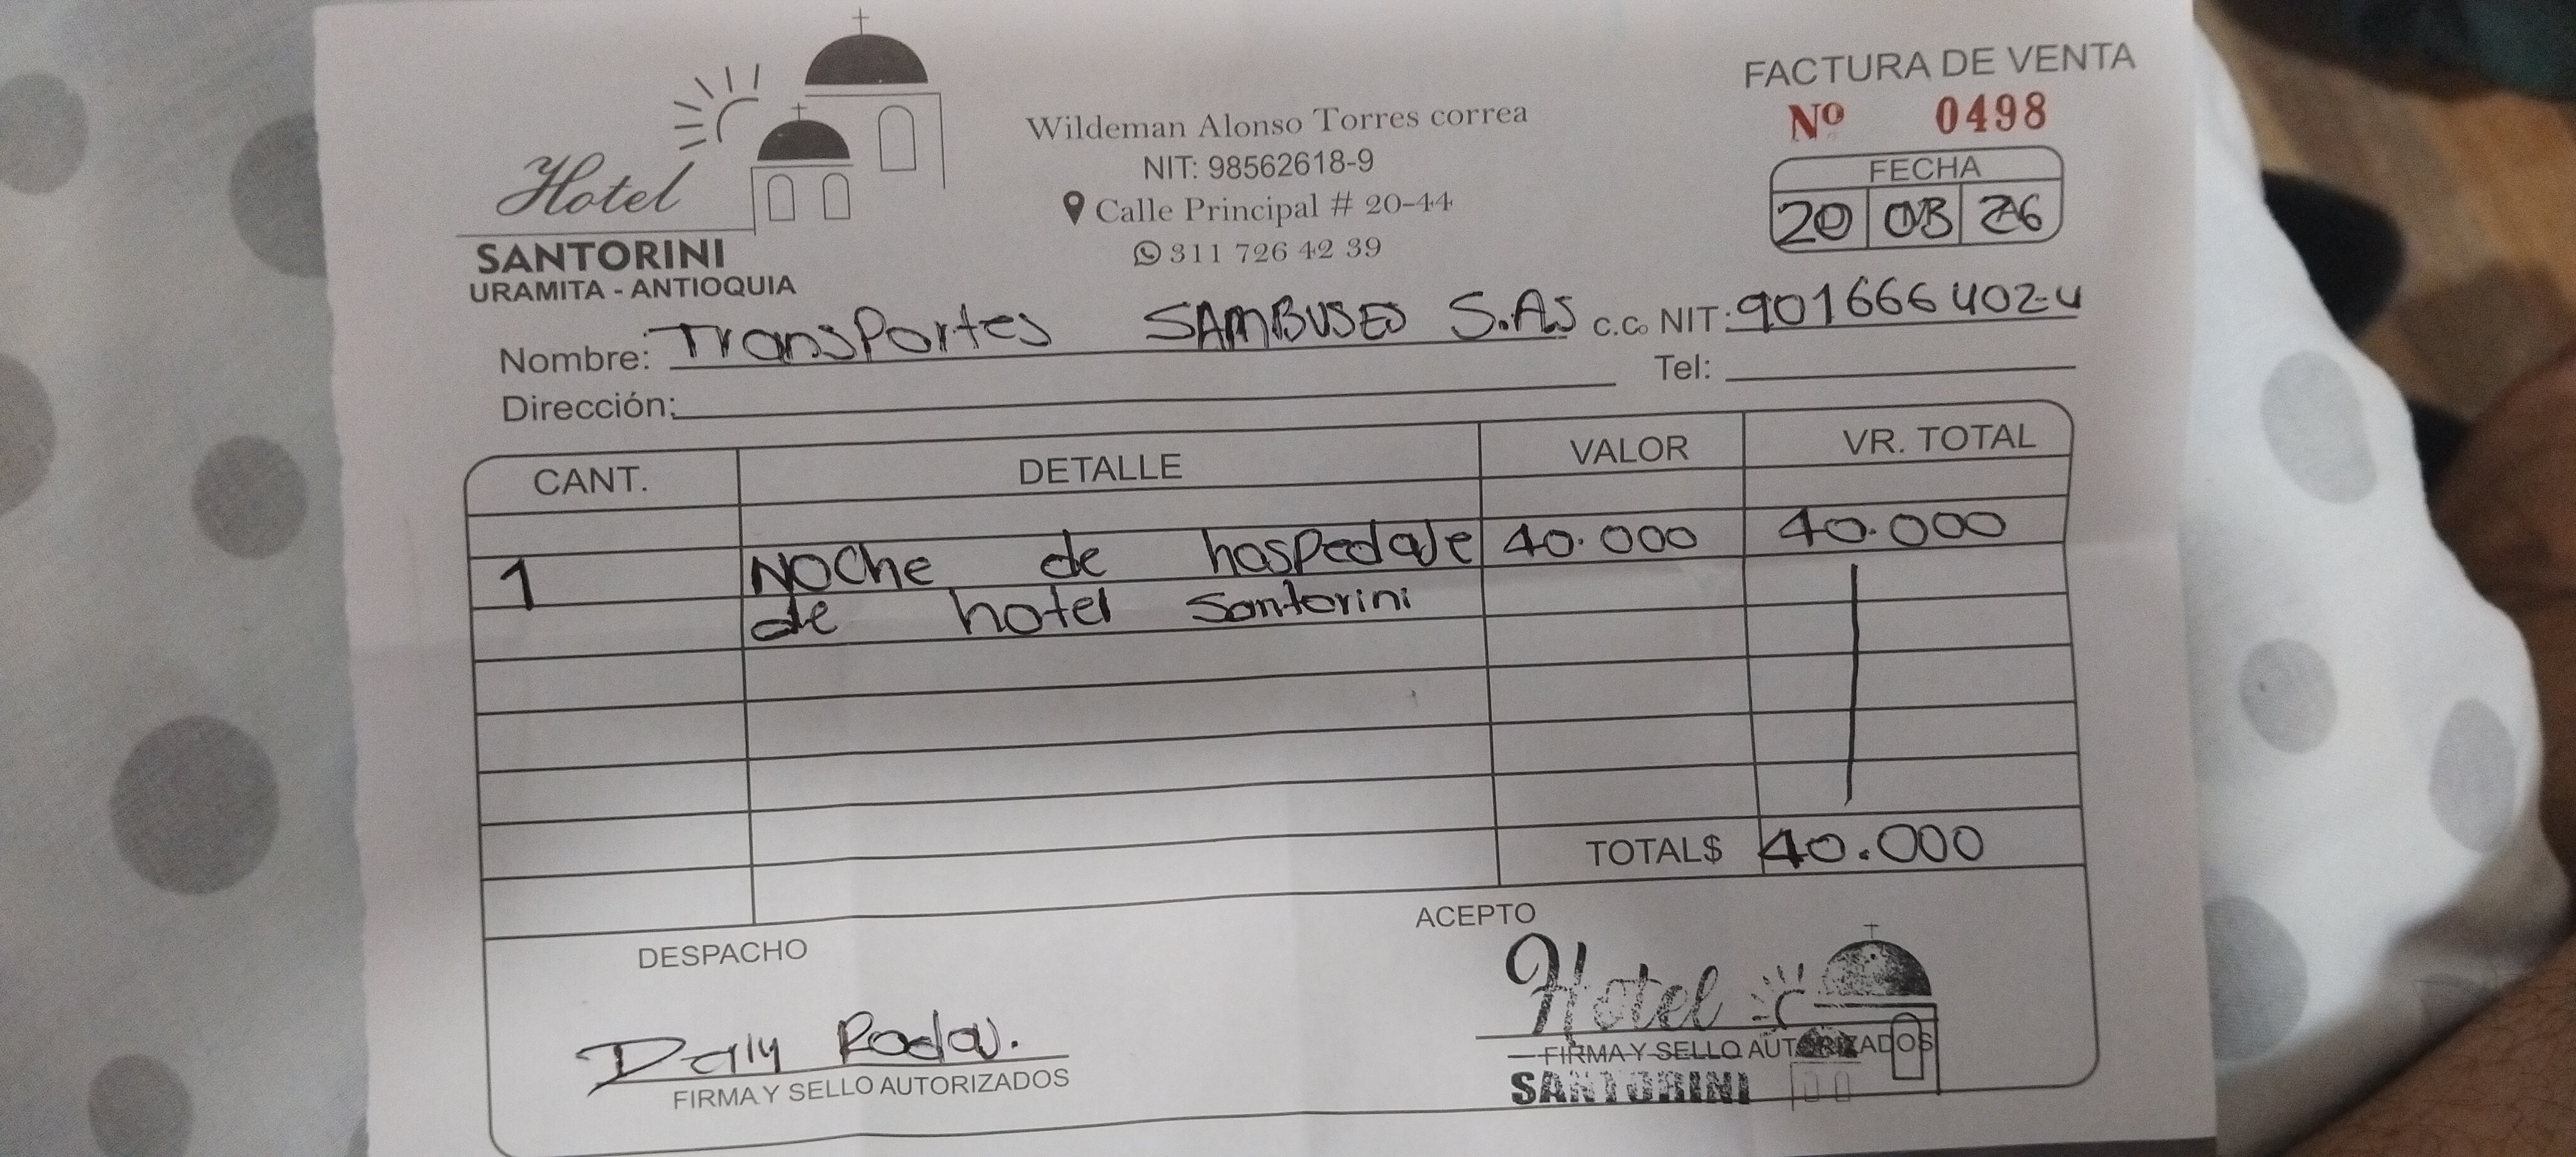 FACTURA DE VENTA
Nº 0498
Wildeman Alonso Torres correa
NIT: 98562618-9
Calle Principal # 20-44
311 726 42 39
FECHA
20
Hotel
SANTORINI
URAMITA - ANTIOQUIA
Nombre: Transportes SAMBUSES S.AS C.C. NIT: 901666402-4
Dirección: Tel:
CANT. DETALLE VALOR VR. TOTAL
1 NOche de hospedaje 40.000 40.000
de hotel Santorini
TOTAL$ 40.000
DESPACHO ACEPTO
FIRMA Y SELLO AUTORIZADOS
Hotel
FIRMA Y SELLO AUTORIZADOS
SANTORINI